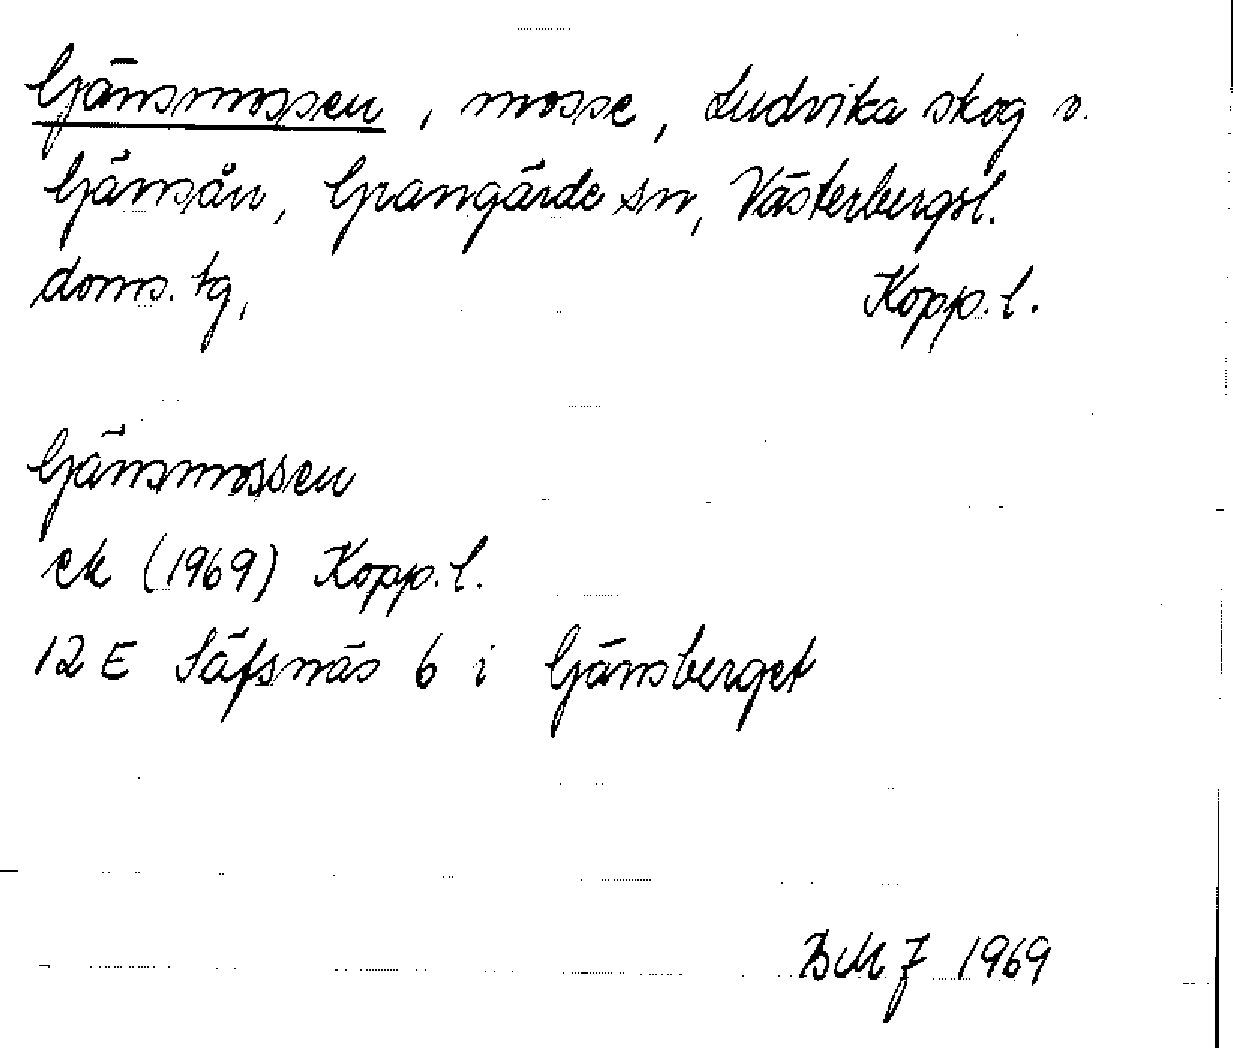 Gjänsmossen, mosse, Ludvika skog o.
Gjänsån, Grangärde sn, Västerbergsl.
doms. tg,    Kopp. l.
Gjänsmossen
ek (1969) Kopp. l.
12 E Säfsnäs 6 i Gjänsberget
BMJ 1969